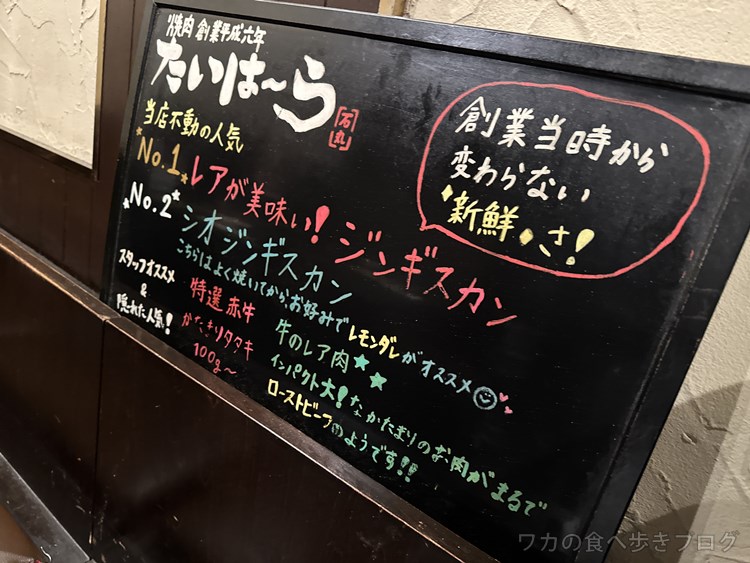 焼肉 創業平成六年
たいは〜ら
石丸
創業当時から
変わらない
新鮮さ!
当店不動の人気
No.1 レアが美味い! ジンギスカン
No.2 シオジンギスカン
こちらはよく焼いてから、お好みでレモンダレがオススメ
スタッフオススメ
&
隠れた人気!
特選赤牛
かたまりタタキ
100g〜
牛のレア肉★★
インパクト大! なかたまりのお肉がまるで
ローストビーフのようです!!
ワカの食べ歩きブログ